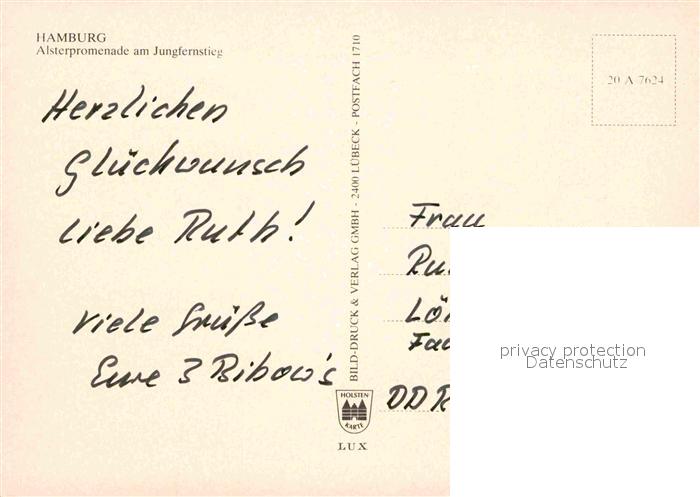 HAMBURG
Alsterpromenade am Jungfernstieg
Herzlichen
Glückwunsch
liebe Ruth!
Viele Grüße
Eure 3 Bibow's
BILD-DRUCK & VERLAG GMBH - 2400 LÜBECK - POSTFACH 1710
HOLSTEN
KARTE
LUX
20 A 7624
Frau
DDR
privacy protection
Datenschutz